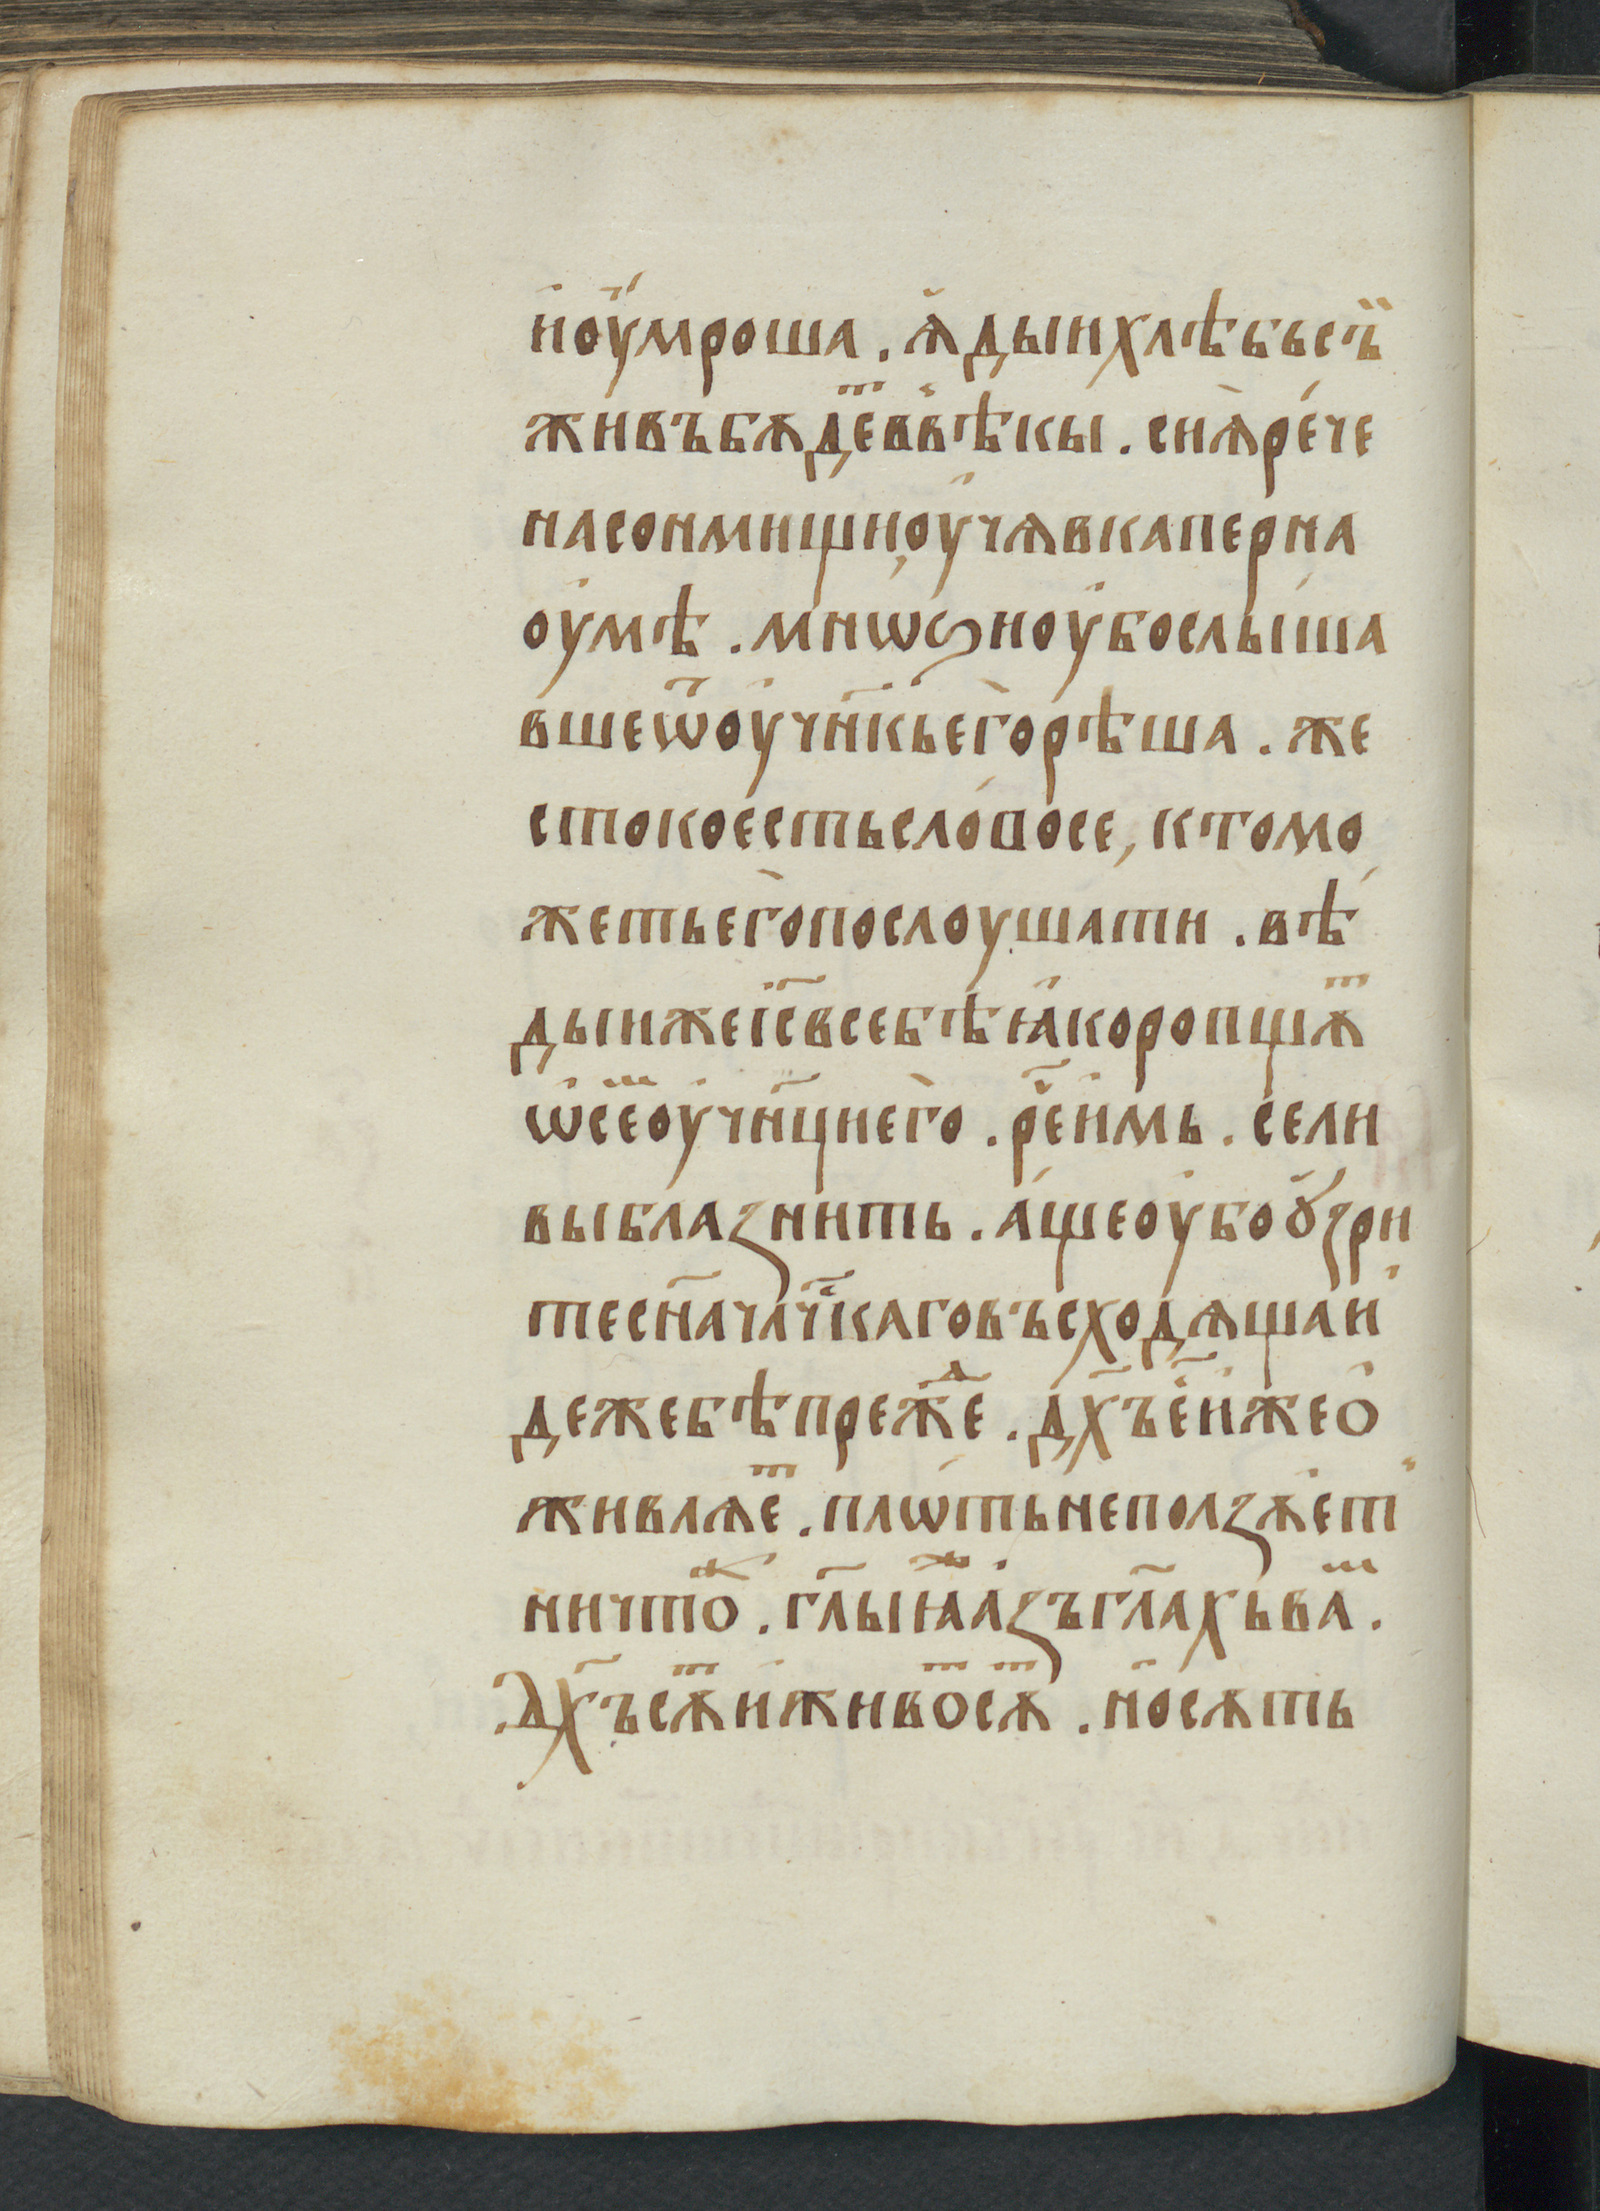 и҆ оу҆́мроша . ѧ҆ды и хлѣбь сїи
живъ бѫдеⷮ в вѣкы . сиѧ҆̀ ре́че
на сонмищи оу҆чѧ в каперна
оу҆мѣ . мно́ѕи оу҆бо слы́ша
вше ѿ оу҆чн҃кь е҆го̀ рѣша . же
стоко е҆сть сло́во се , кто мо́
жеть е҆го̀ послоушати . вѣ
ды иже і҆с҃ в себѣ ꙗ҆ко ропщѫⷮ
ѡ҆ сеⷨ оу҆чн҃ци е҆го̀ . рⷱ҇е и҆мь . се ли
вы блазни́ть . а҆́ще оу҆бо ᲂу҆зри
те сн҃а чл҃чⷭ҇каго въсходѧща и҆
деже бѣ преⷤⷣе . дх҃ъ е҆҃ и҆же о҆
живлѧ́еⷮ . пло́ть не ползѫ́е҆т
ничтоⷤ . гл҃ы ꙗ҆ⷤ а҆зъ гл҃ахь ваⷨ .
дх҃ъ сѫⷮ и҆ живоⷮ сѫⷮ . н҆о сѫть